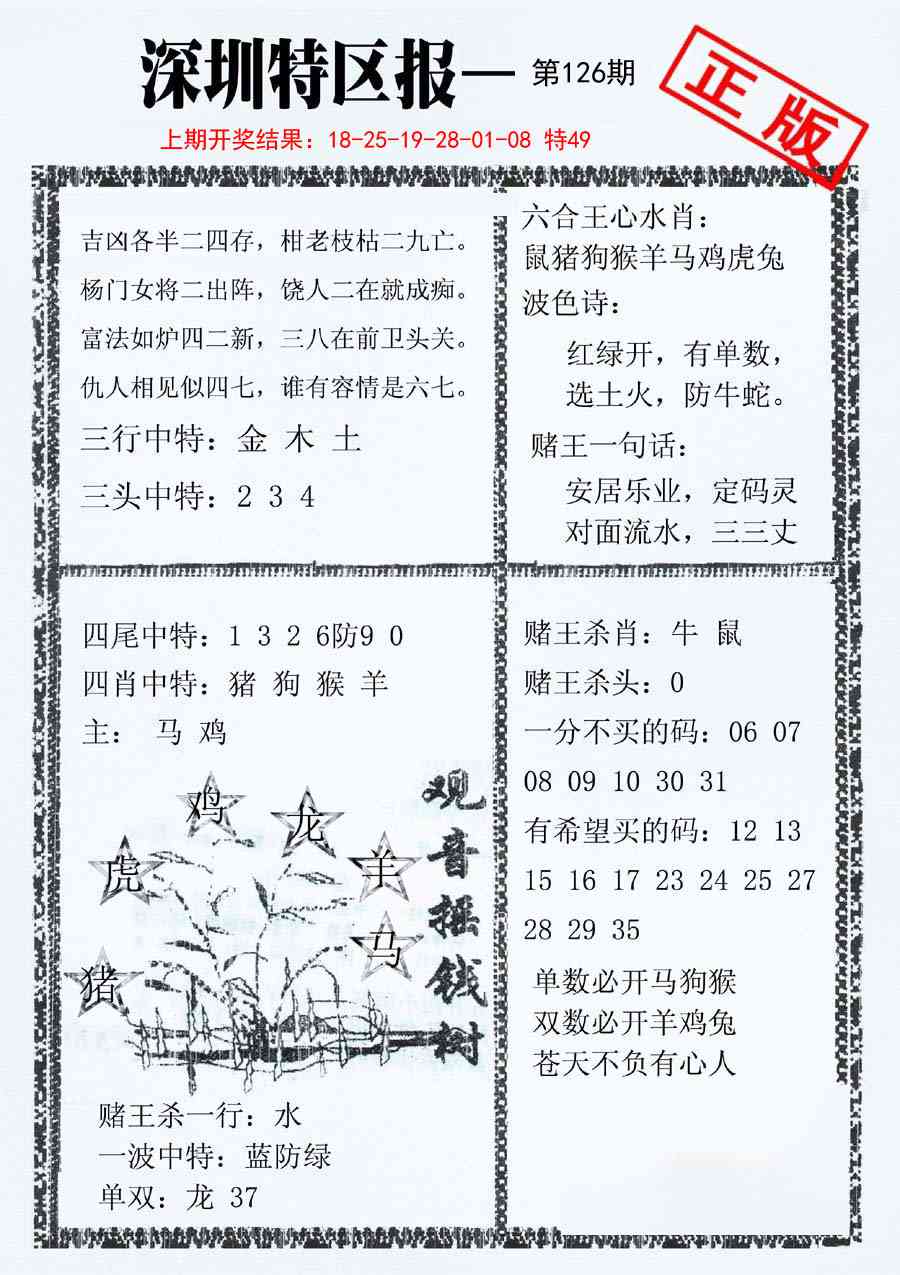 深圳特区报— 第126期
正版
上期开奖结果：18-25-19-28-01-08 特49
吉凶各半二四存，柑老枝枯二九亡。
杨门女将二出阵，饶人二在就成痴。
富法如炉四二新，三八在前卫头关。
仇人相见似四七，谁有容情是六七。
三行中特：金 木 土
三头中特：2 3 4
六合王心水肖：
鼠猪狗猴羊马鸡虎兔
波色诗：
红绿开，有单数，
选土火，防牛蛇。
赌王一句话：
安居乐业，定码灵
对面流水，三三丈
四尾中特：1 3 2 6防9 0
四肖中特：猪 狗 猴 羊
主： 马 鸡
鸡
龙
虎
羊
马
猪
观音摇钱树
赌王杀一行：水
一波中特：蓝防绿
单双：龙 37
赌王杀肖：牛 鼠
赌王杀头：0
一分不买的码：06 07
08 09 10 30 31
有希望买的码：12 13
15 16 17 23 24 25 27
28 29 35
单数必开马狗猴
双数必开羊鸡兔
苍天不负有心人